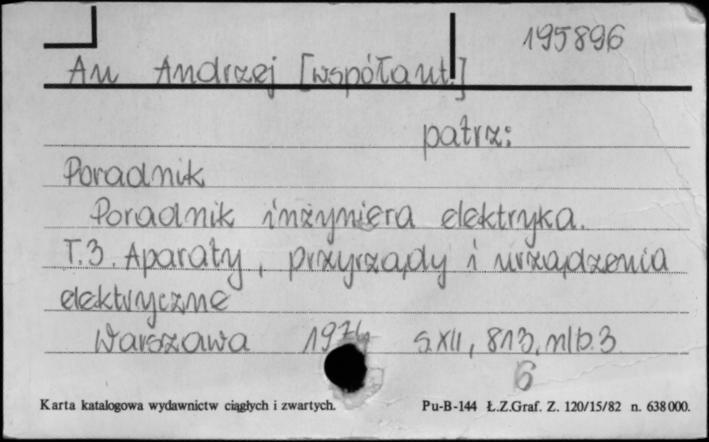 195896
Au Andrzej [współaut.]
patrz:
Poradnik
Poradnik inżyniera elektryka.
T.3. Aparaty, przyrządy i urządzenia
elektryczne
Warszawa 1974 s.XII, 813, nlb.3
6
Karta katalogowa wydawnictw ciągłych i zwartych. Pu-B-144 Ł.Z.Graf. Z. 120/15/82 n. 638000.